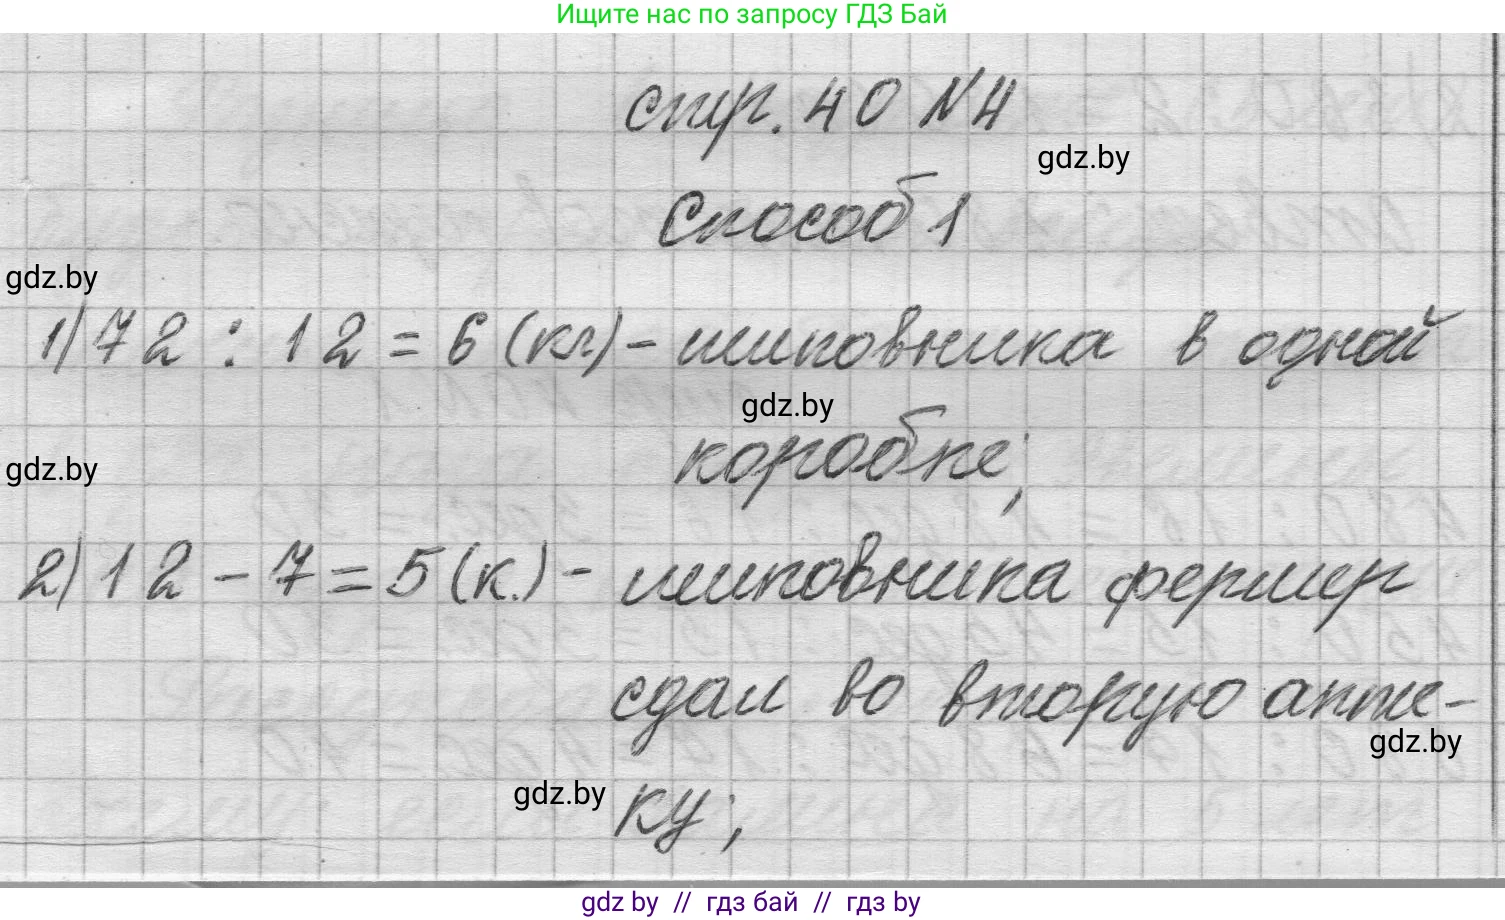 Ищите нас по запросу ГДЗ Бай
стр. 40 N4
gdz.by
Способ 1
gdz.by
1) 72 : 12 = 6 (кг) - шиповника в одной
gdz.by
коробке;
gdz.by
2) 12 - 7 = 5 (к.) - шиповника фермер
сдал во вторую апте-
gdz.by
gdz.by
ку;
gdz by // гдз бай // гдз by